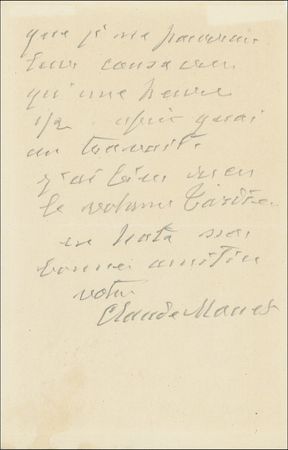 que je ne pourrai
leur consacrer
qu'une heure
1/2 après quoi
au travail.
j'ai bien reçu
le volume
en hate mes
bonnes amitiés
votre
Claude Monet